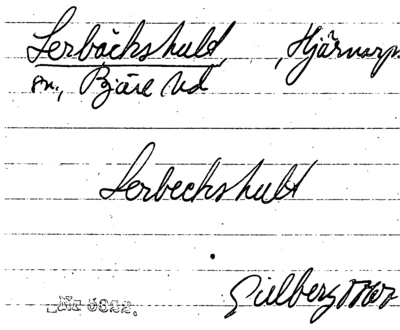 Lerbäckshult, Hjärnarps
sn., Bjäre hd
Lerbeckshult
Gilberg 1767
№ 5322.